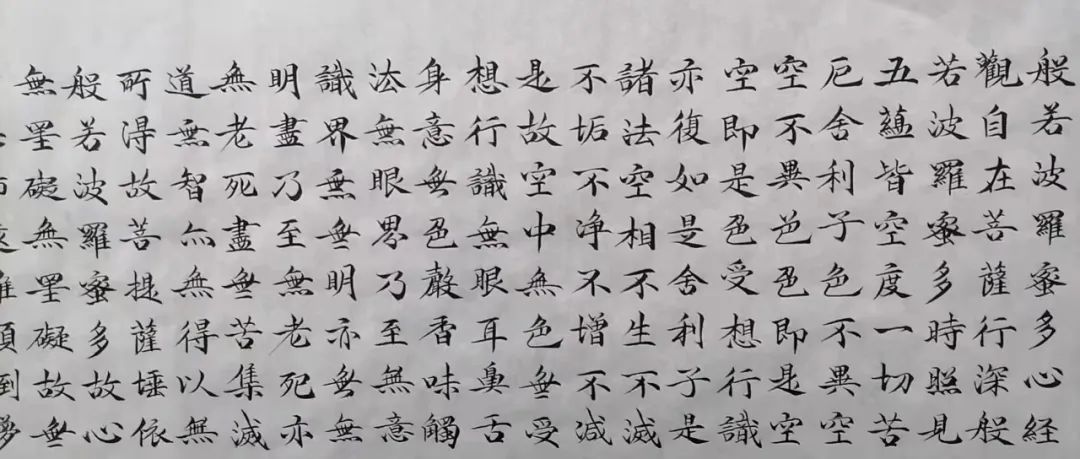 般若波羅蜜多心経
觀自在菩薩行深般
若波羅蜜多時照見
五蘊皆空度一切苦
厄舍利子色不異空
空不異色色即是空
空即是色受想行識
亦復如是舍利子是
諸法空相不生不滅
不垢不净不增不减
是故空中無色無受
想行識無眼耳鼻舌
身意無色聲香味觸
法無眼界乃至無意
識界無無明亦無無
明盡乃至無老死亦
無老死盡無苦集滅
道無智亦無得以無
所得故菩提薩埵依
般若波羅蜜多故心
無罣礙無罣礙故無